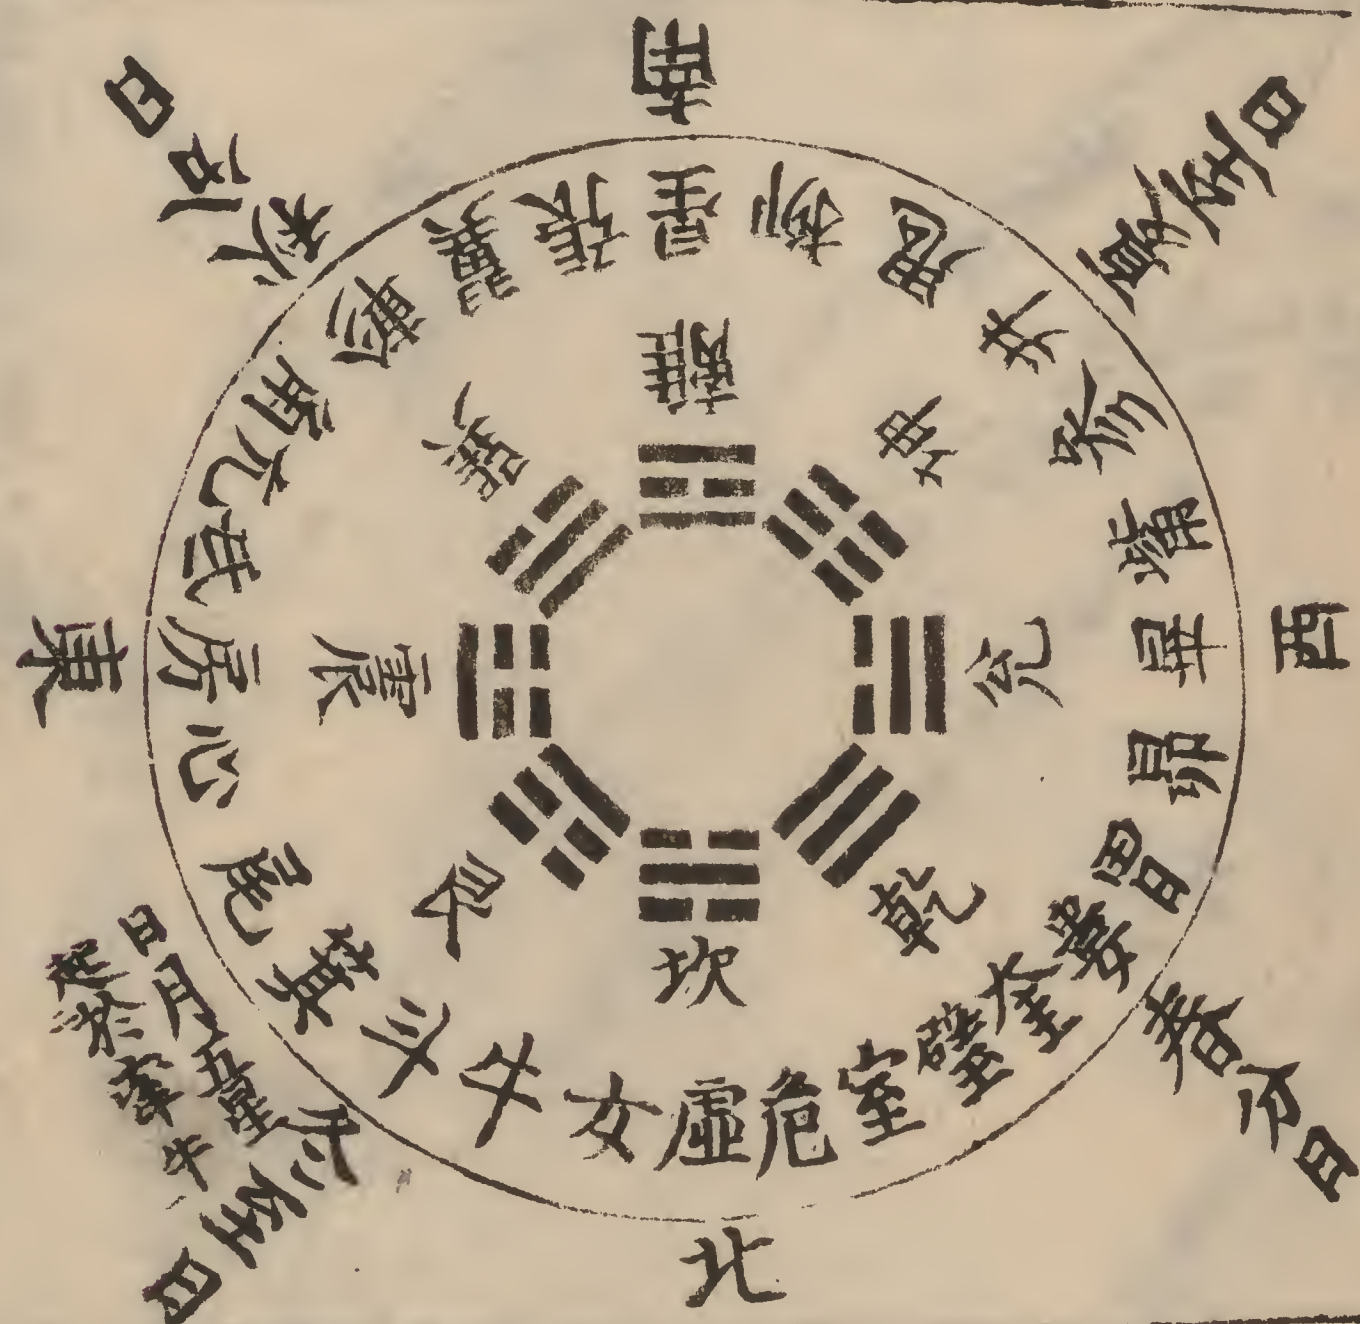 南
西
北
東
夏至日
春分日
冬至日
日月五星
起於牽牛
秋分日
角亢氐房心尾箕
斗牛女虛危室壁
奎婁胃昴畢觜參
井鬼柳星張翼軫
離
坤
兌
乾
坎
艮
震
巽